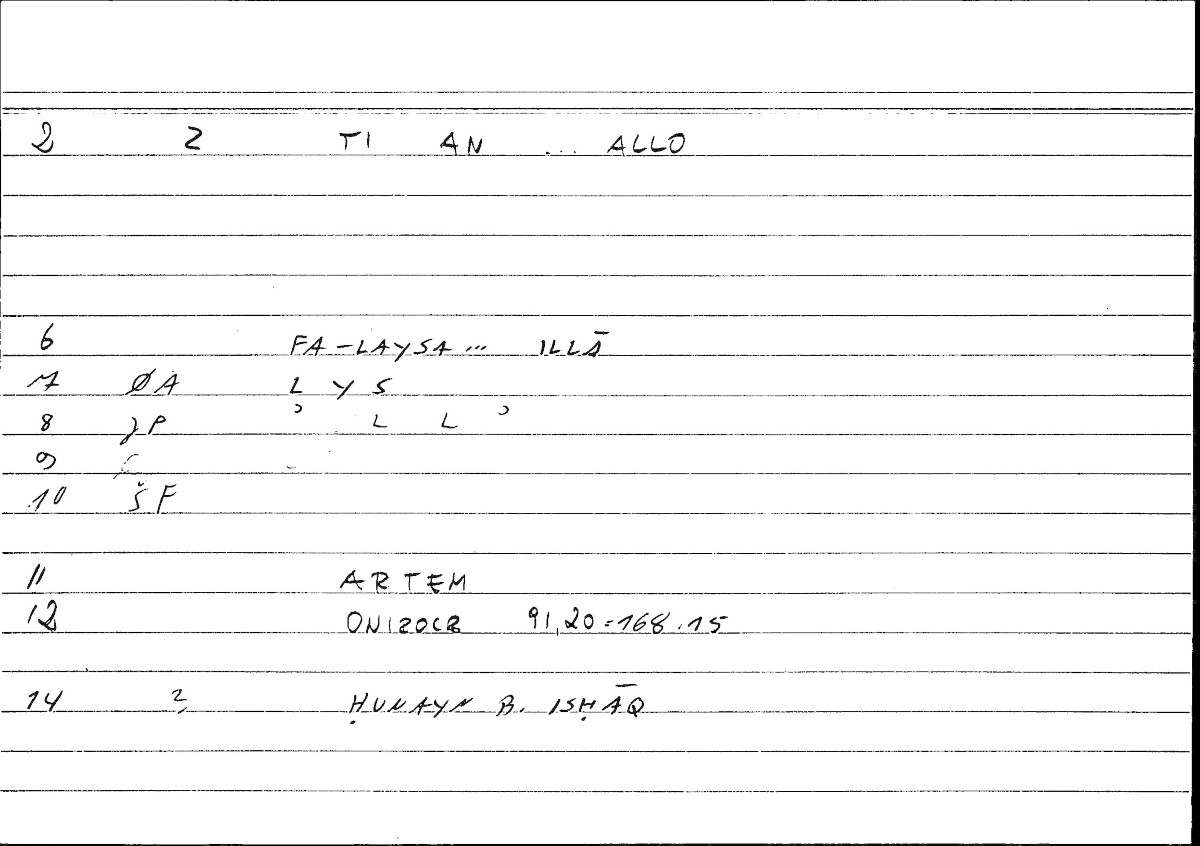 2 2 TI AN ... ALLO
6 FA-LAYSA... ILLĀ
7 ØA L Y S
8 JP ʾ L L ʾ
9
10 ŠF
11 ARTEM
12 ONIROCR 91,20=168.15
14 2 ḤUNAYN B. ISḤĀQ